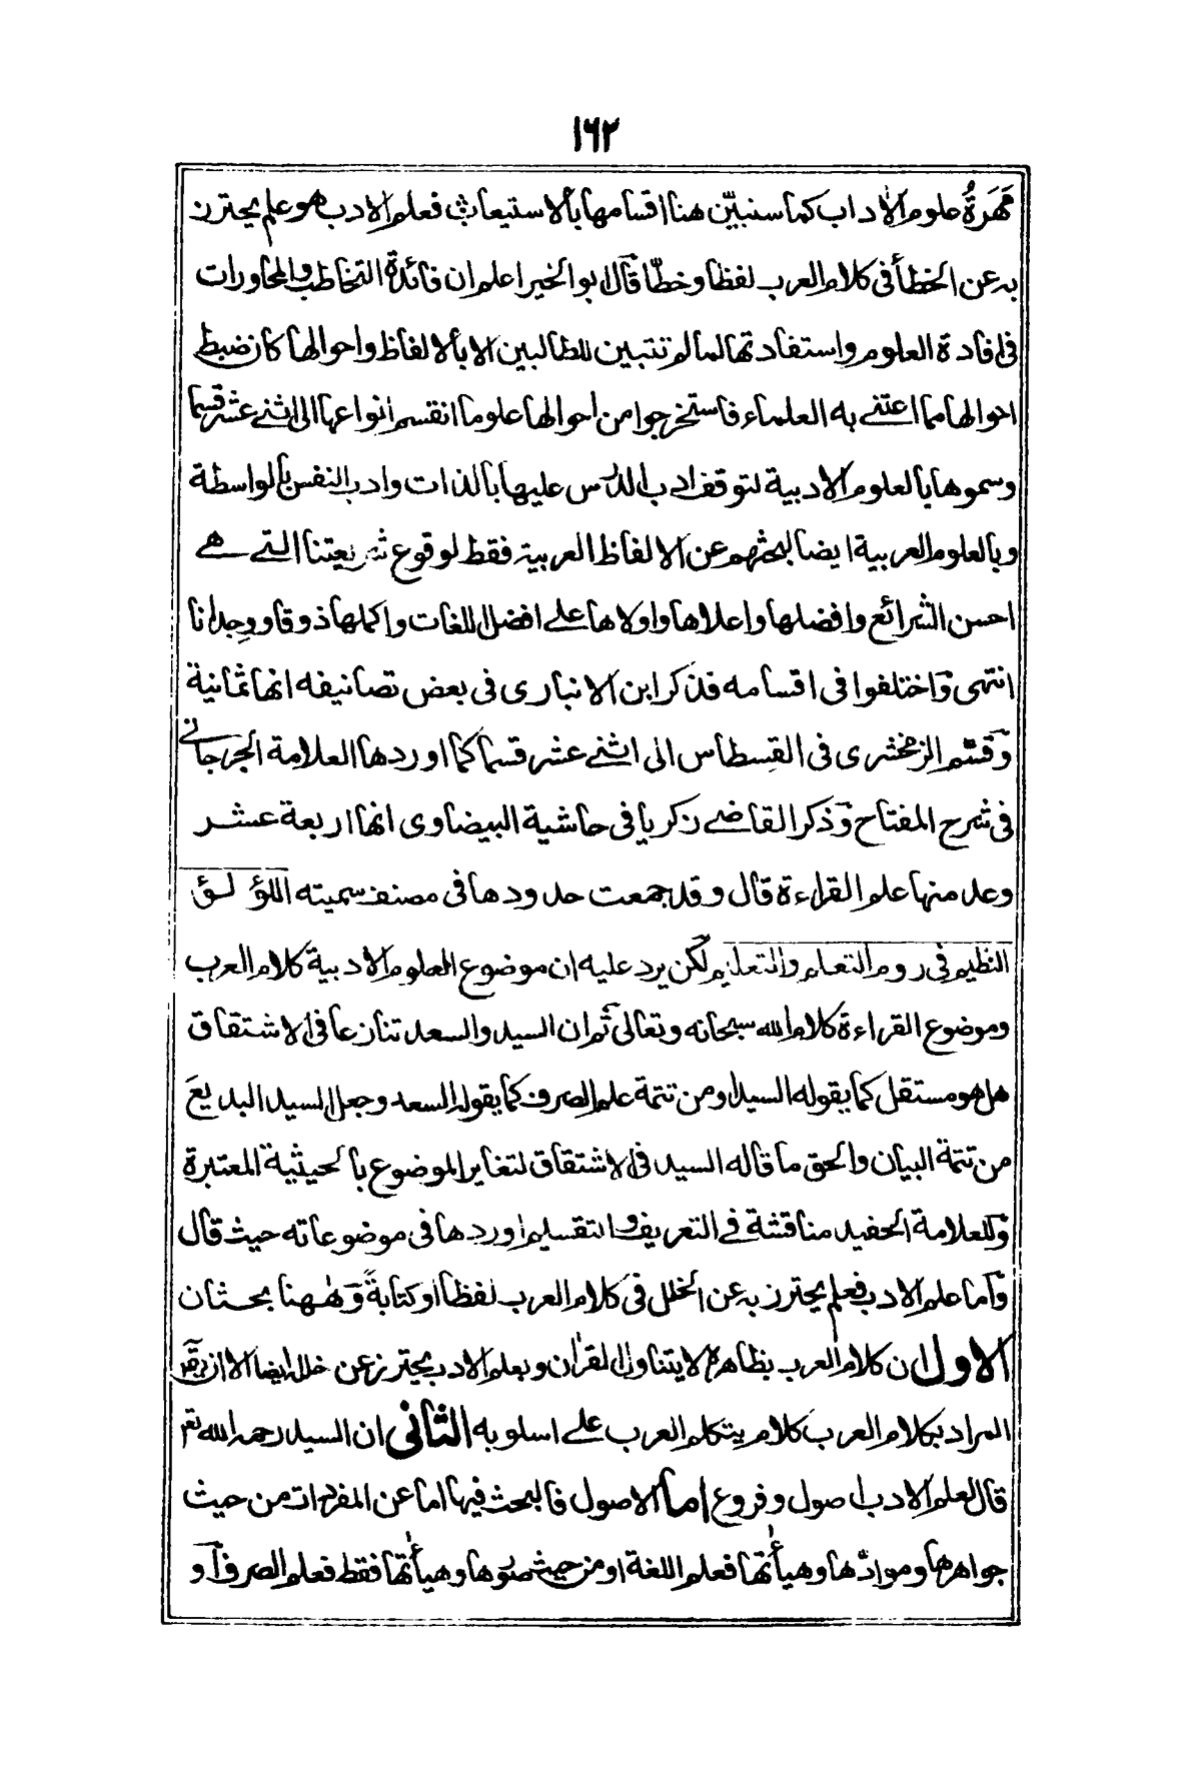 ١٦٢
مَهَرَةُ علوم الاٰداب كما سنبيّن هنا اقسامها بالاستيعاب فعلم الادب هو علم يحترز
به عن الخطأ فى كلام العرب لفظا وخطّا قال ابو الخير اعلم ان فائدة التخاطب والمحاورات
فى افادة العلوم واستفادتها لما لم تتبين للطالبين الا بالالفاظ واحوالها كان ضبط
احوالها مما اعتنے به العلماء فاستخرجوا من احوالها علوما انقسم انواعها الى اثنے عشر قسما
وسموها بالعلوم الادبية لتوقف ادب الدرس عليها بالذات وادب النفس بالواسطة
وبالعلوم العربية ايضا لبحثهم عن الالفاظ العربية فقط لوقوع شريعتنا التے هے
احسن الشرائع وافضلها واعلاها واولاها علے افضل اللغات واكملها ذوقا ووجدانا
انتهى واختلفوا فى اقسامه فذكر ابن الانبارى فى بعض تصانيفه انها ثمانية
وقسّم الزمخشرى فى القسطاس الى اثنے عشر قسما كما اوردها العلامة الجرجانے
فى شرح المفتاح وذكر القاضے زكريا فى حاشية البيضاوى انها اربعة عشر
وعد منها علم القراءة قال وقد جمعت حدودها فى مصنف سميته اللؤلؤ
النظيم فى روم التعلم والتعليم لكن يرد عليه ان موضوع العلوم الادبية كلام العرب
وموضوع القراءة كلام الله سبحانه وتعالى ثم ان السيد والسعد تنازعا فى الاشتقاق
هل هو مستقل كما يقوله السيد او من تتمة علم الصرف كما يقوله السعد وجعل السيد البديع
من تتمة البيان والحق ما قاله السيد فى الاشتقاق لتغاير الموضوع بالحيثية المعتبرة
وللعلامة الحفيد مناقشة فے التعريف والتقسيم اوردها فى موضوعاته حيث قال
واما علم الادب فعلم يحترز به عن الخلل فى كلام العرب لفظا او كتابةً وهٰهنا بحثان
الاول ان كلام العرب بظاهره لا يتناول القراٰن وبعلم الادب يحترز عن خلله ايضا الا ان يقر
المراد بكلام العرب كلام يتكلم العرب علے اسلوبه الثانى ان السيد رحمه الله تعـ
قال لعلم الادب اصول وفروع اما الاصول فالبحث فيها اما عن المفردات من حيث
جواهرها وموادّها وهيأٰتها فعلم اللغة او من حيث صوّها وهيأٰتها فقط فعلم الصرف او